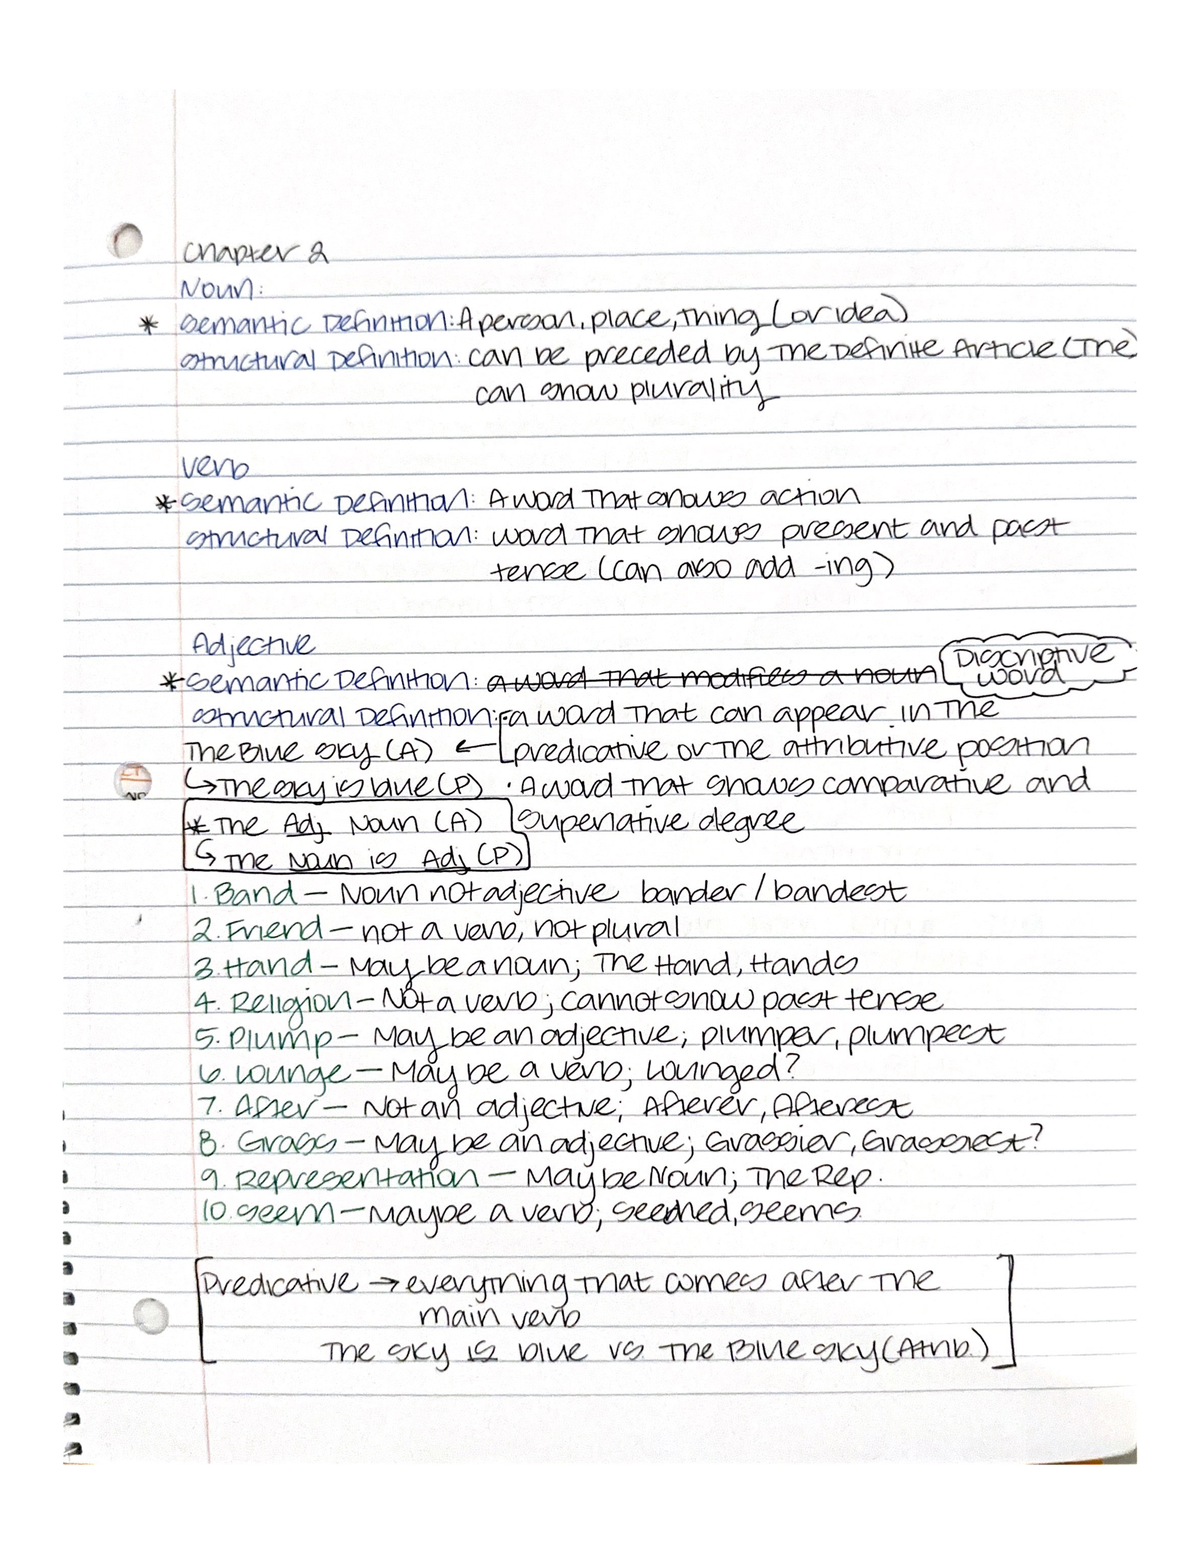 Chapter 2
Noun:
* Semantic Definition: A person, place, thing (or idea)
Structural Definition: can be preceded by The Definite Article (The)
can show plurality
Verb
* Semantic Definition: A word That shows action
Structural Definition: word That shows present and past
tense (can also add -ing)
Adjective
* Semantic Definition: a word That modifies a noun Discriptive
word
Structural Definition: a word That can appear in The
The Blue sky (A) ← predicative or The attributive position
↳ The sky is blue (P) · A word That shows comparative and
* The Adj Noun (A) superlative degree
↳ The Noun is Adj (P)
1. Band — Noun not adjective bander / bandest
2. Friend — not a verb, not plural
3. Hand — May be a noun; The Hand, Hands
4. Religion — Not a verb; cannot show past tense
5. Plump — May be an adjective; plumper, plumpest
6. Lounge — May be a verb; Lounged?
7. After — Not an adjective; Afterer, Afterest
8. Grass — May be an adjective; Grassier, Grassiest?
9. Representation — Maybe Noun; The Rep.
10. Seem — Maybe a verb; seemed, seems
Predicative → everything That comes after The
main verb
The sky is blue vs The Blue sky (Attrib.)